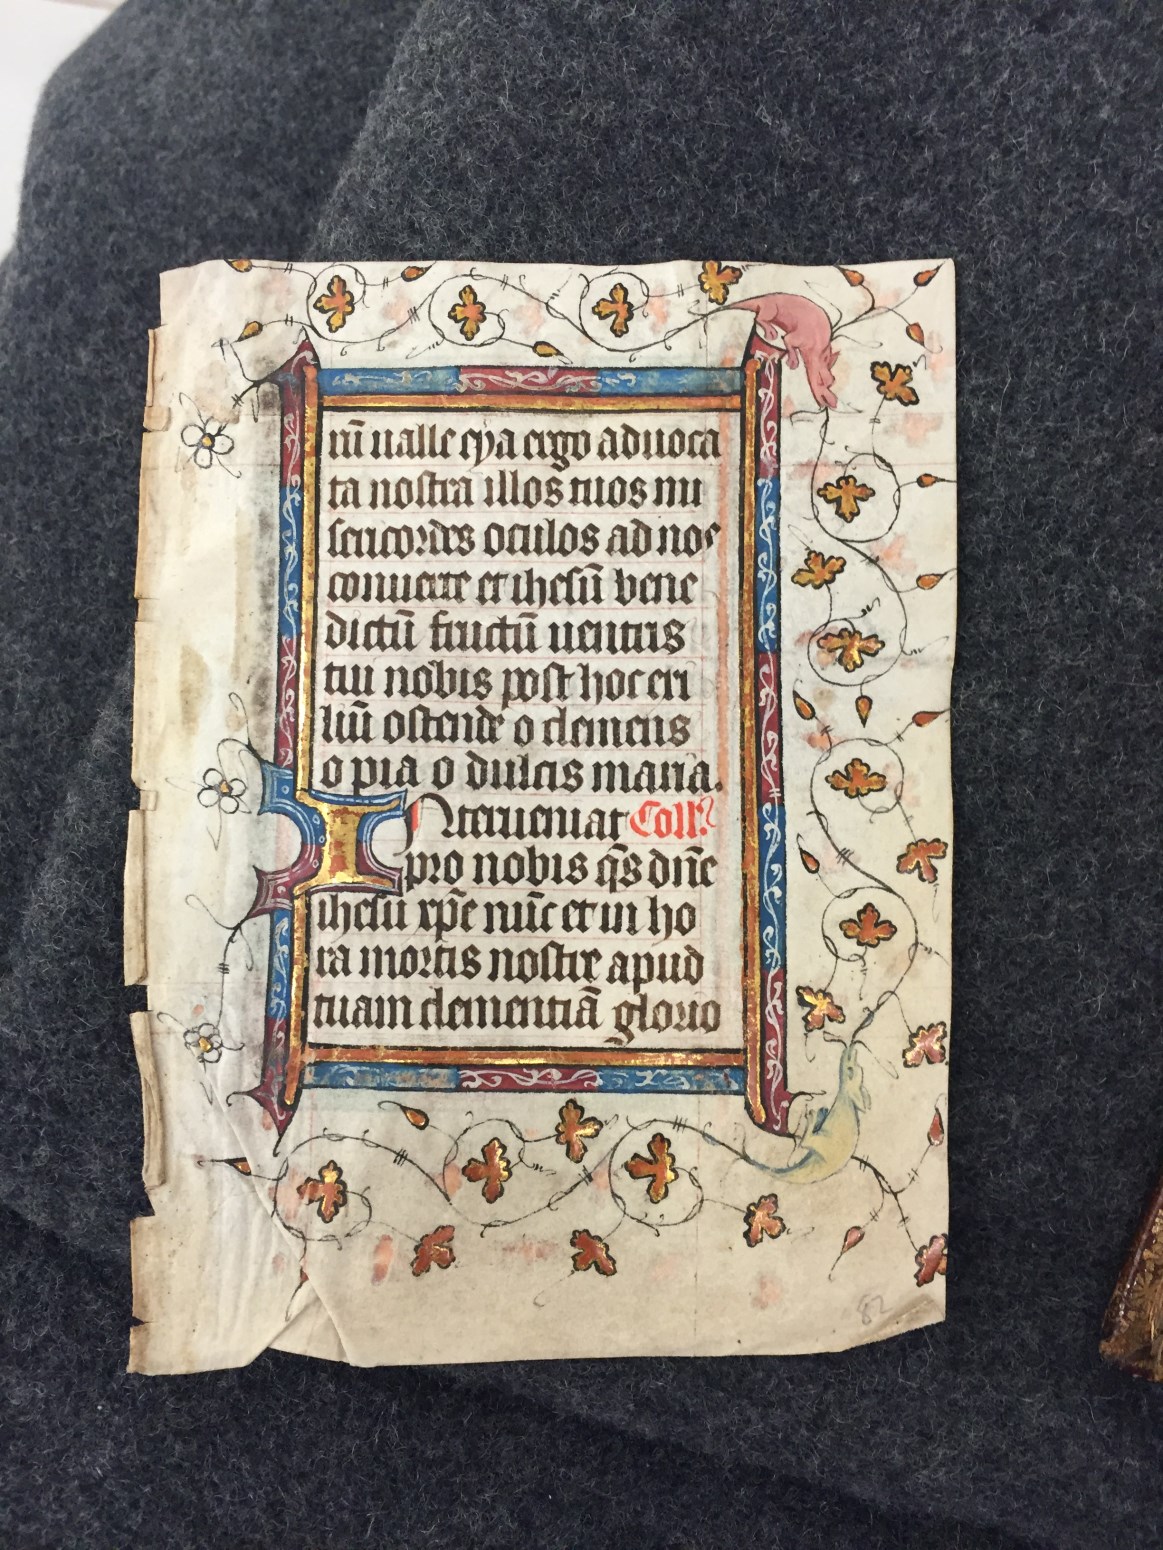 rū ualle eya ergo aduoca
ta nostra illos tuos mi
sericordes oculos ad nos
conuerte et ihesū bene
dictū fructū uentris
tui nobis post hoc exi
liū ostende o clemens
o pia o dulcis maria.
INterueniat Coll.
pro nobis q̄s dn̄e
ihesu xp̄e nūc et in ho
ra mortis nostre apud
tuam clementiā glorio
82